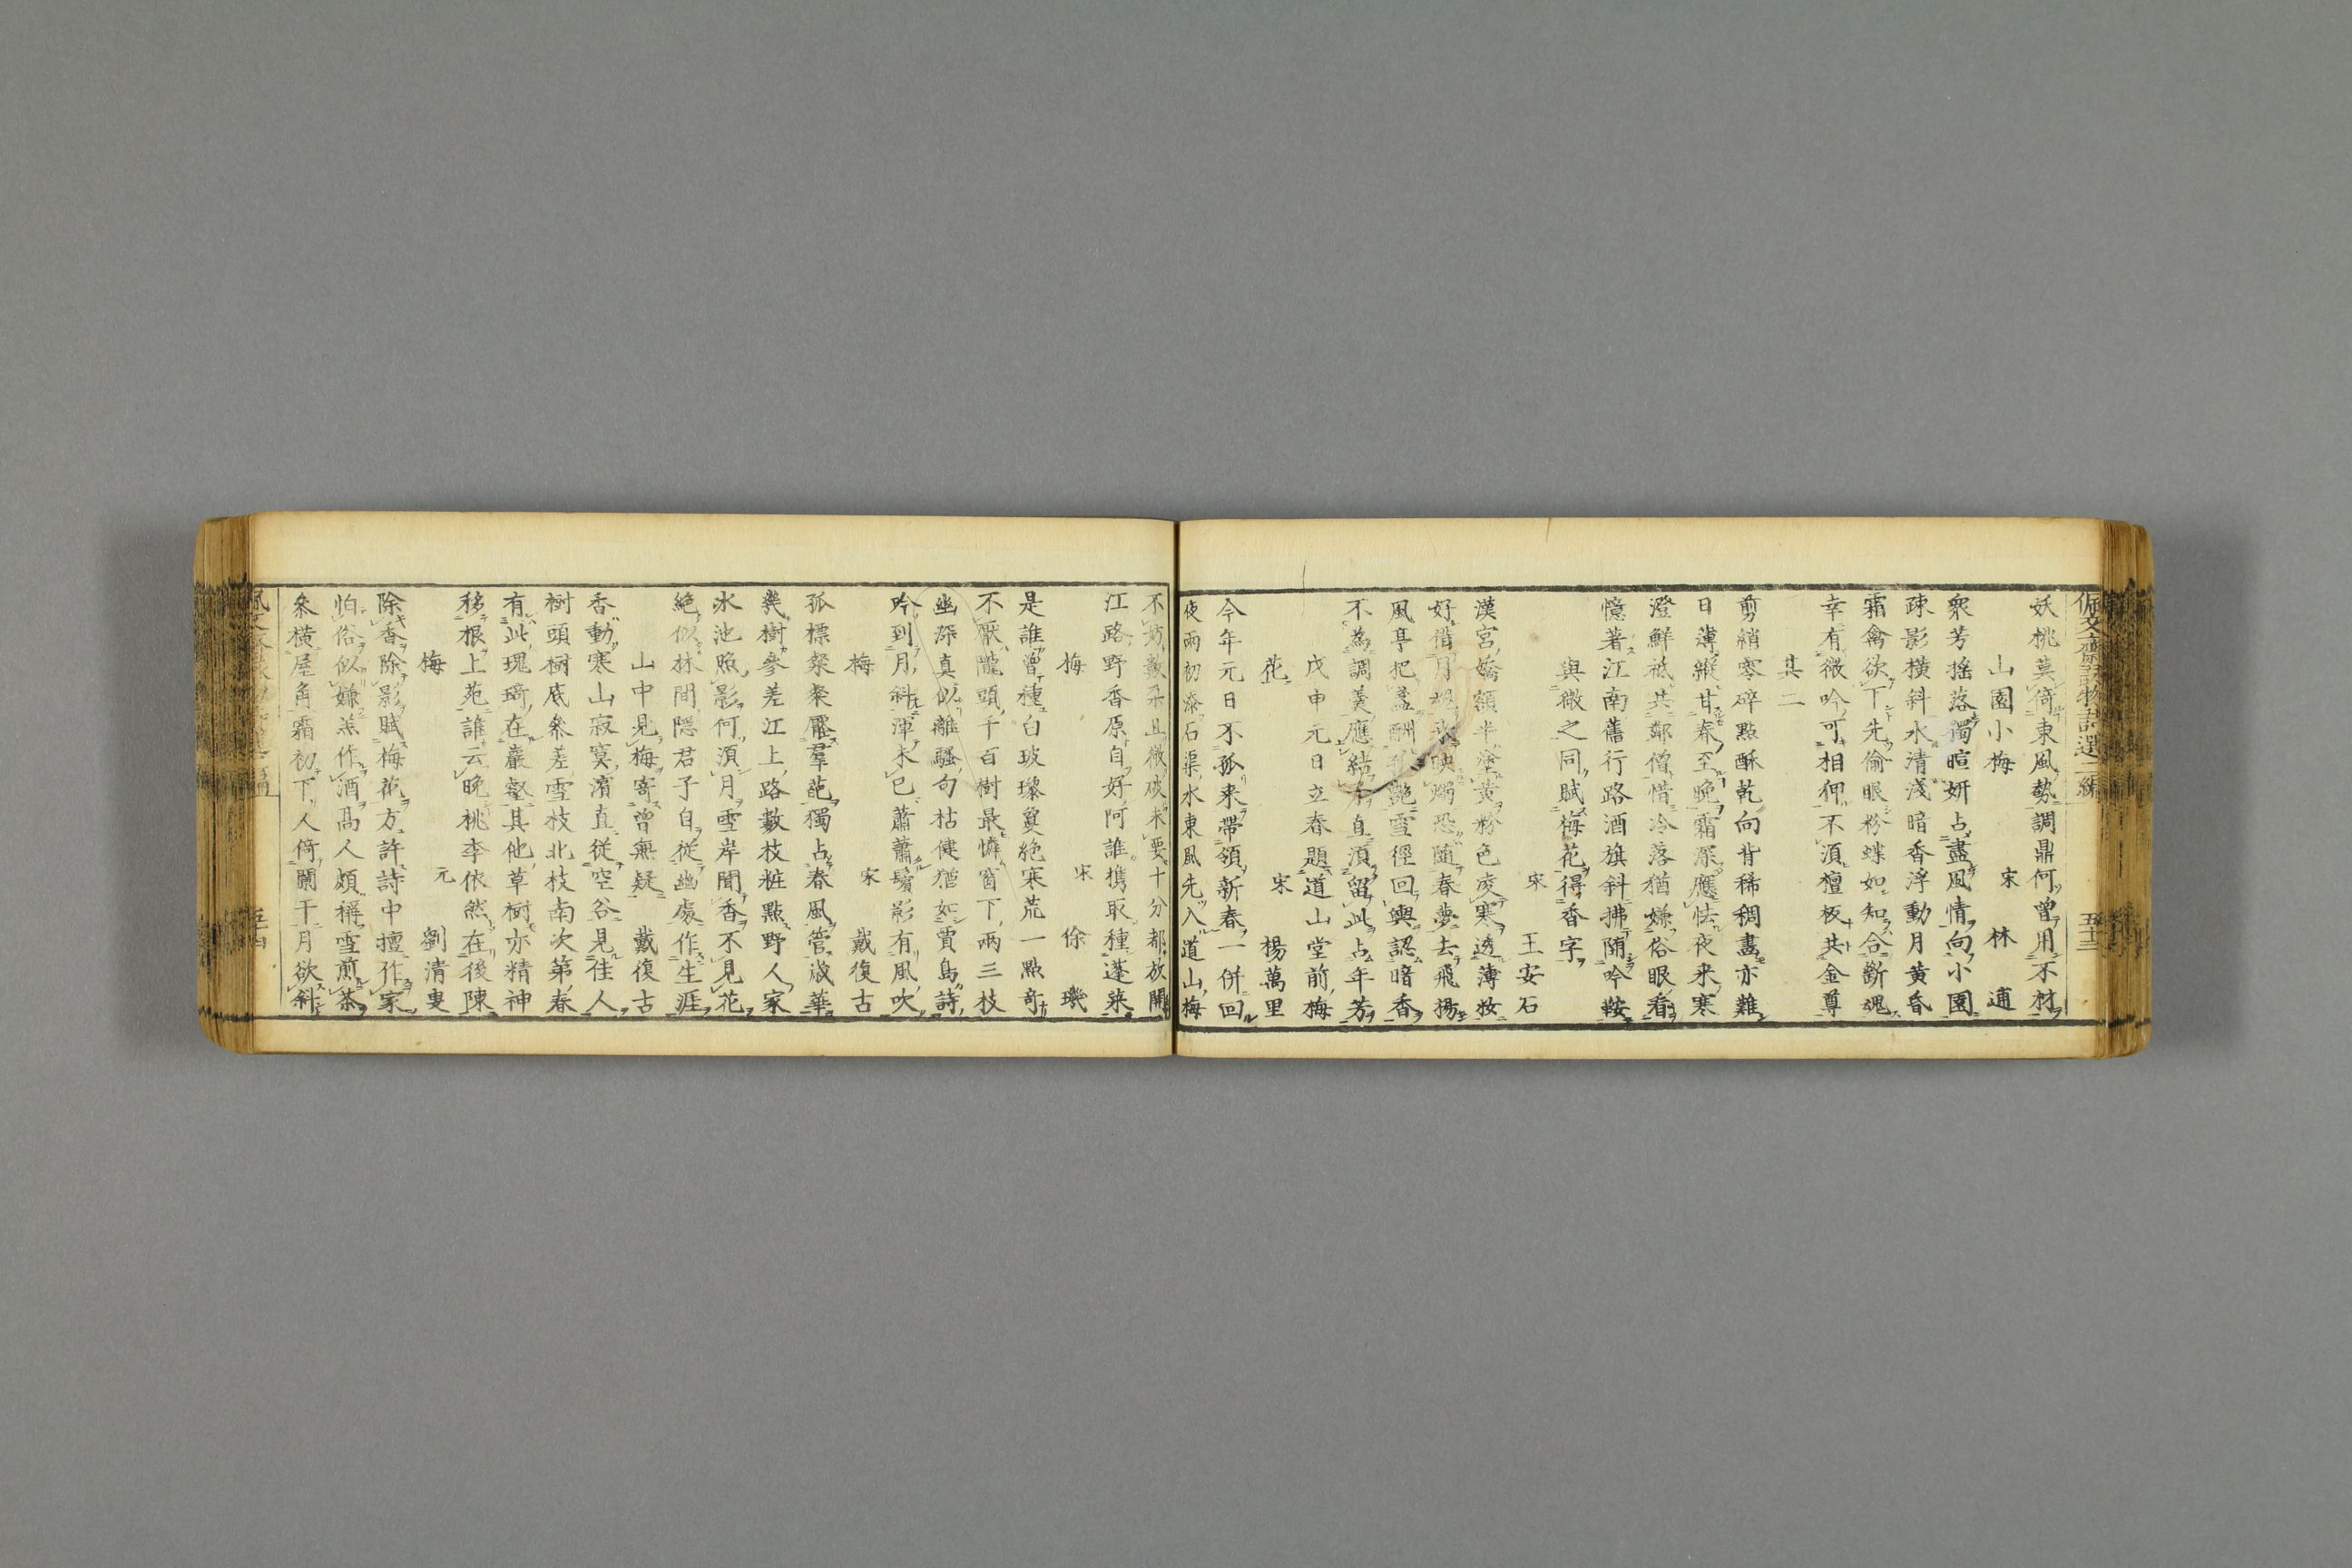 佩文齋詠物詩選二編
五十三
妖桃莫倚東風勢調鼎何曾用不材
山園小梅 宋 林逋
衆芳揺落獨暄妍占盡風情向小園
疎影橫斜水清淺暗香浮動月黄昏
霜禽欲下先偷眼粉蝶如知合斷魂
幸有微吟可相狎不須檀板共金尊
其二
剪綃零碎點酥乾向背稀稠畫亦難
日薄縱甘春至晚霜深應怯夜来寒
澄鮮祗共鄰僧惜冷落猶嫌俗眼看
憶著江南舊行路酒旗斜拂堕吟鞍
與微之同賦梅花得香字
宋 王安石
漢宮嬌額半塗黃粉色凌寒透薄妝
好借月魂来映燭恐隨春夢去飛揚
風亭把盞酬孤艶雪徑回輿認暗香
不為調羹應結子直須留此占年芳
戊申元日立春題道山堂前梅
花 宋 楊萬里
今年元日不孤来帶領新春一併回
夜雨初添石渠水東風先入道山梅
不妨數朶且微破未要十分都放開
江路野香原自好阿誰携取種蓬萊
梅 宋 徐璣
是誰曾種白玻瓈奠絶寒荒一點奇
不厭隴頭千百樹最憐窗下兩三枝
幽深真似離騷句枯健猶如賈島詩
吟到月斜渾未已蕭蕭鬢影有風吹
梅 宋 戴復古
孤標粲粲壓羣葩獨占春風管歳華
幾樹參差江上路數枝粧點野人家
氷池照影何須月雪岸聞香不見花
絶似林間隠君子自從幽處作生涯
山中見梅寄曾無疑 戴復古
香動寒山寂寞濱直從空谷見佳人
樹頭樹底參差雪枝北枝南次第春
有此瑰琦在巖壑其他草樹亦精神
移根上苑誰云晩桃李依然在後陳
梅 元 劉清叟
除香除影賦梅花方許詩中擅作家
怕俗似嫌羔作酒髙人頗稱雪煎茶
參橫屋角霜初下人倚闌干月欲斜